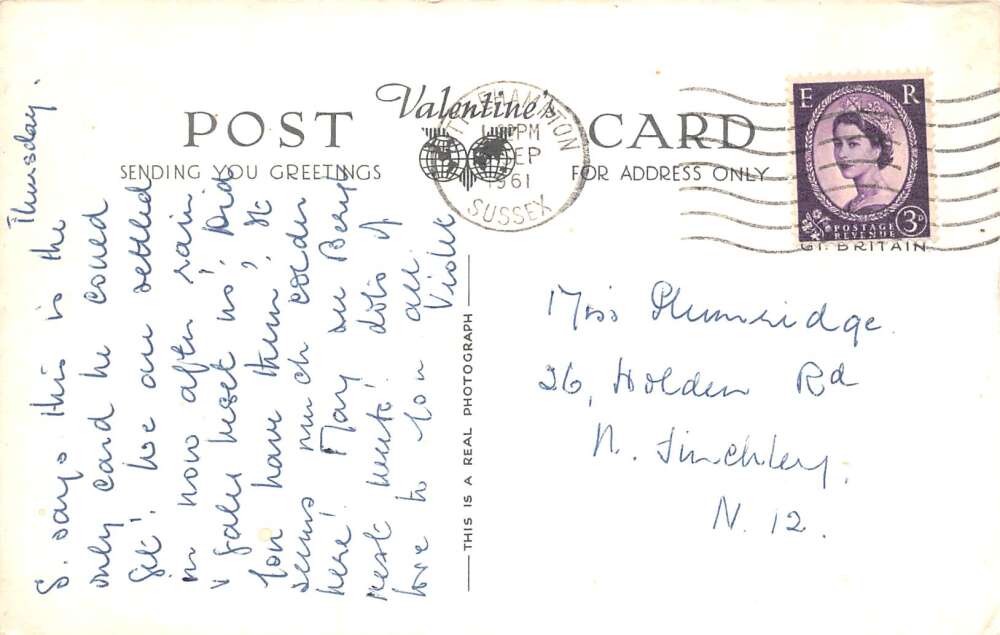 POST Valentine's CARD
SENDING YOU GREETINGS
FOR ADDRESS ONLY
HAMPTON
PM
SEP
1961
SUSSEX
E R
POSTAGE
REVENUE
3D
GT. BRITAIN
THIS IS A REAL PHOTOGRAPH
Thursday.
S. says this is the
only card he could
get! We are settled
in now after rain
& gales lost no! Did
you have them, it
seems much colder
here! May see Beryl
next week! lots of
love to you all.
Violet
Miss Plumridge
26, Holden Rd
N. Finchley,
N. 12.